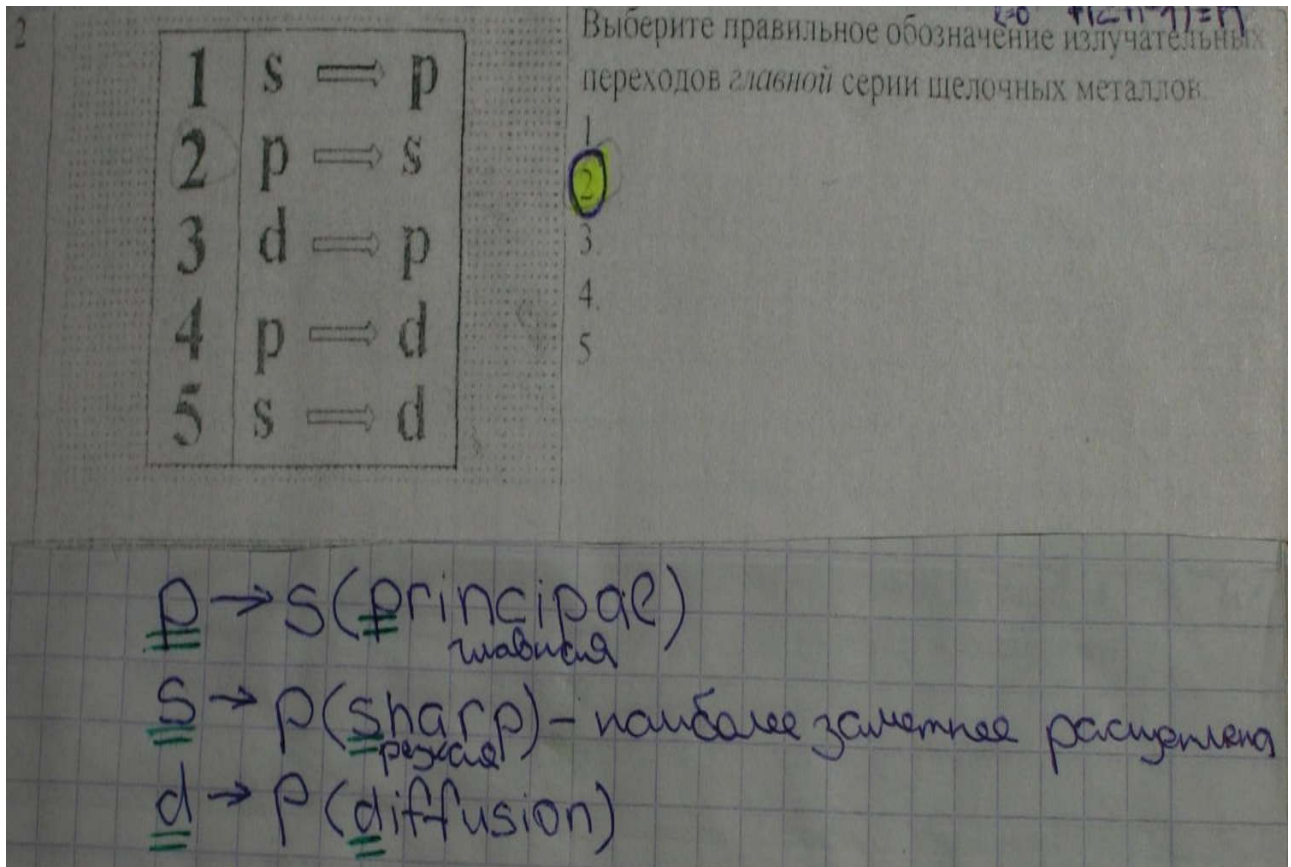 2
1 s ⇒ p
2 p ⇒ s
3 d ⇒ p
4 p ⇒ d
5 s ⇒ d
Выберите правильное обозначение излучательных
переходов главной серии щелочных металлов.
1
2
3.
4.
5
p → s (principal)
главная
s → p (sharp) – наиболее заметнее расщеплена
резкая
d → p (diffusion)